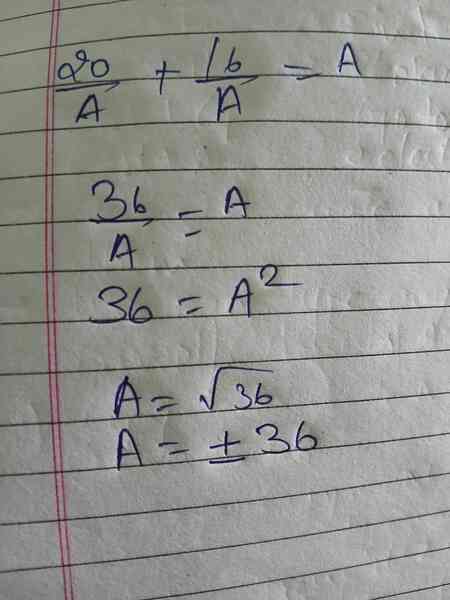 20/A + 16/A = A
36/A = A
36 = A²
A = √36
A = ± 36